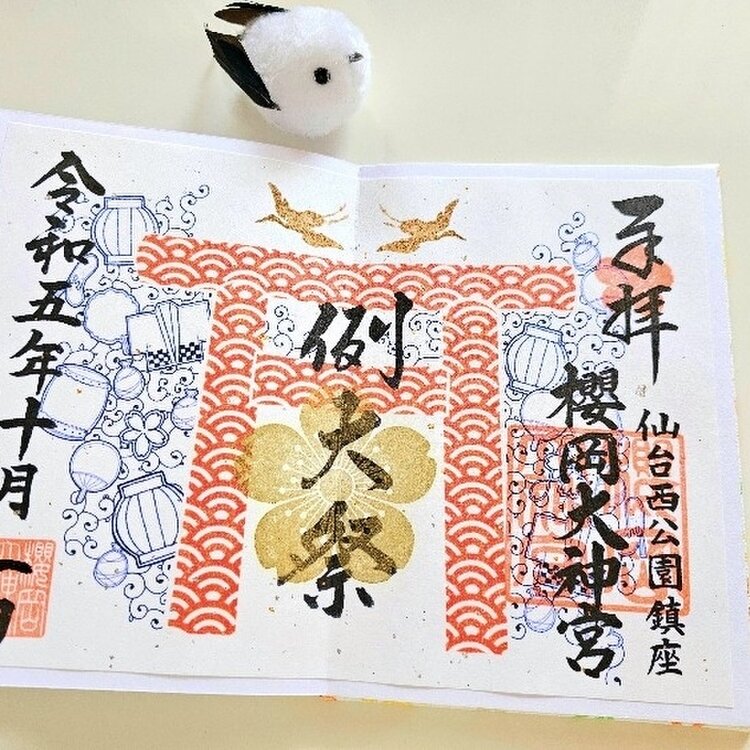 奉拝
仙台西公園鎮座
櫻岡大神宮
例大祭
令和五年十月一